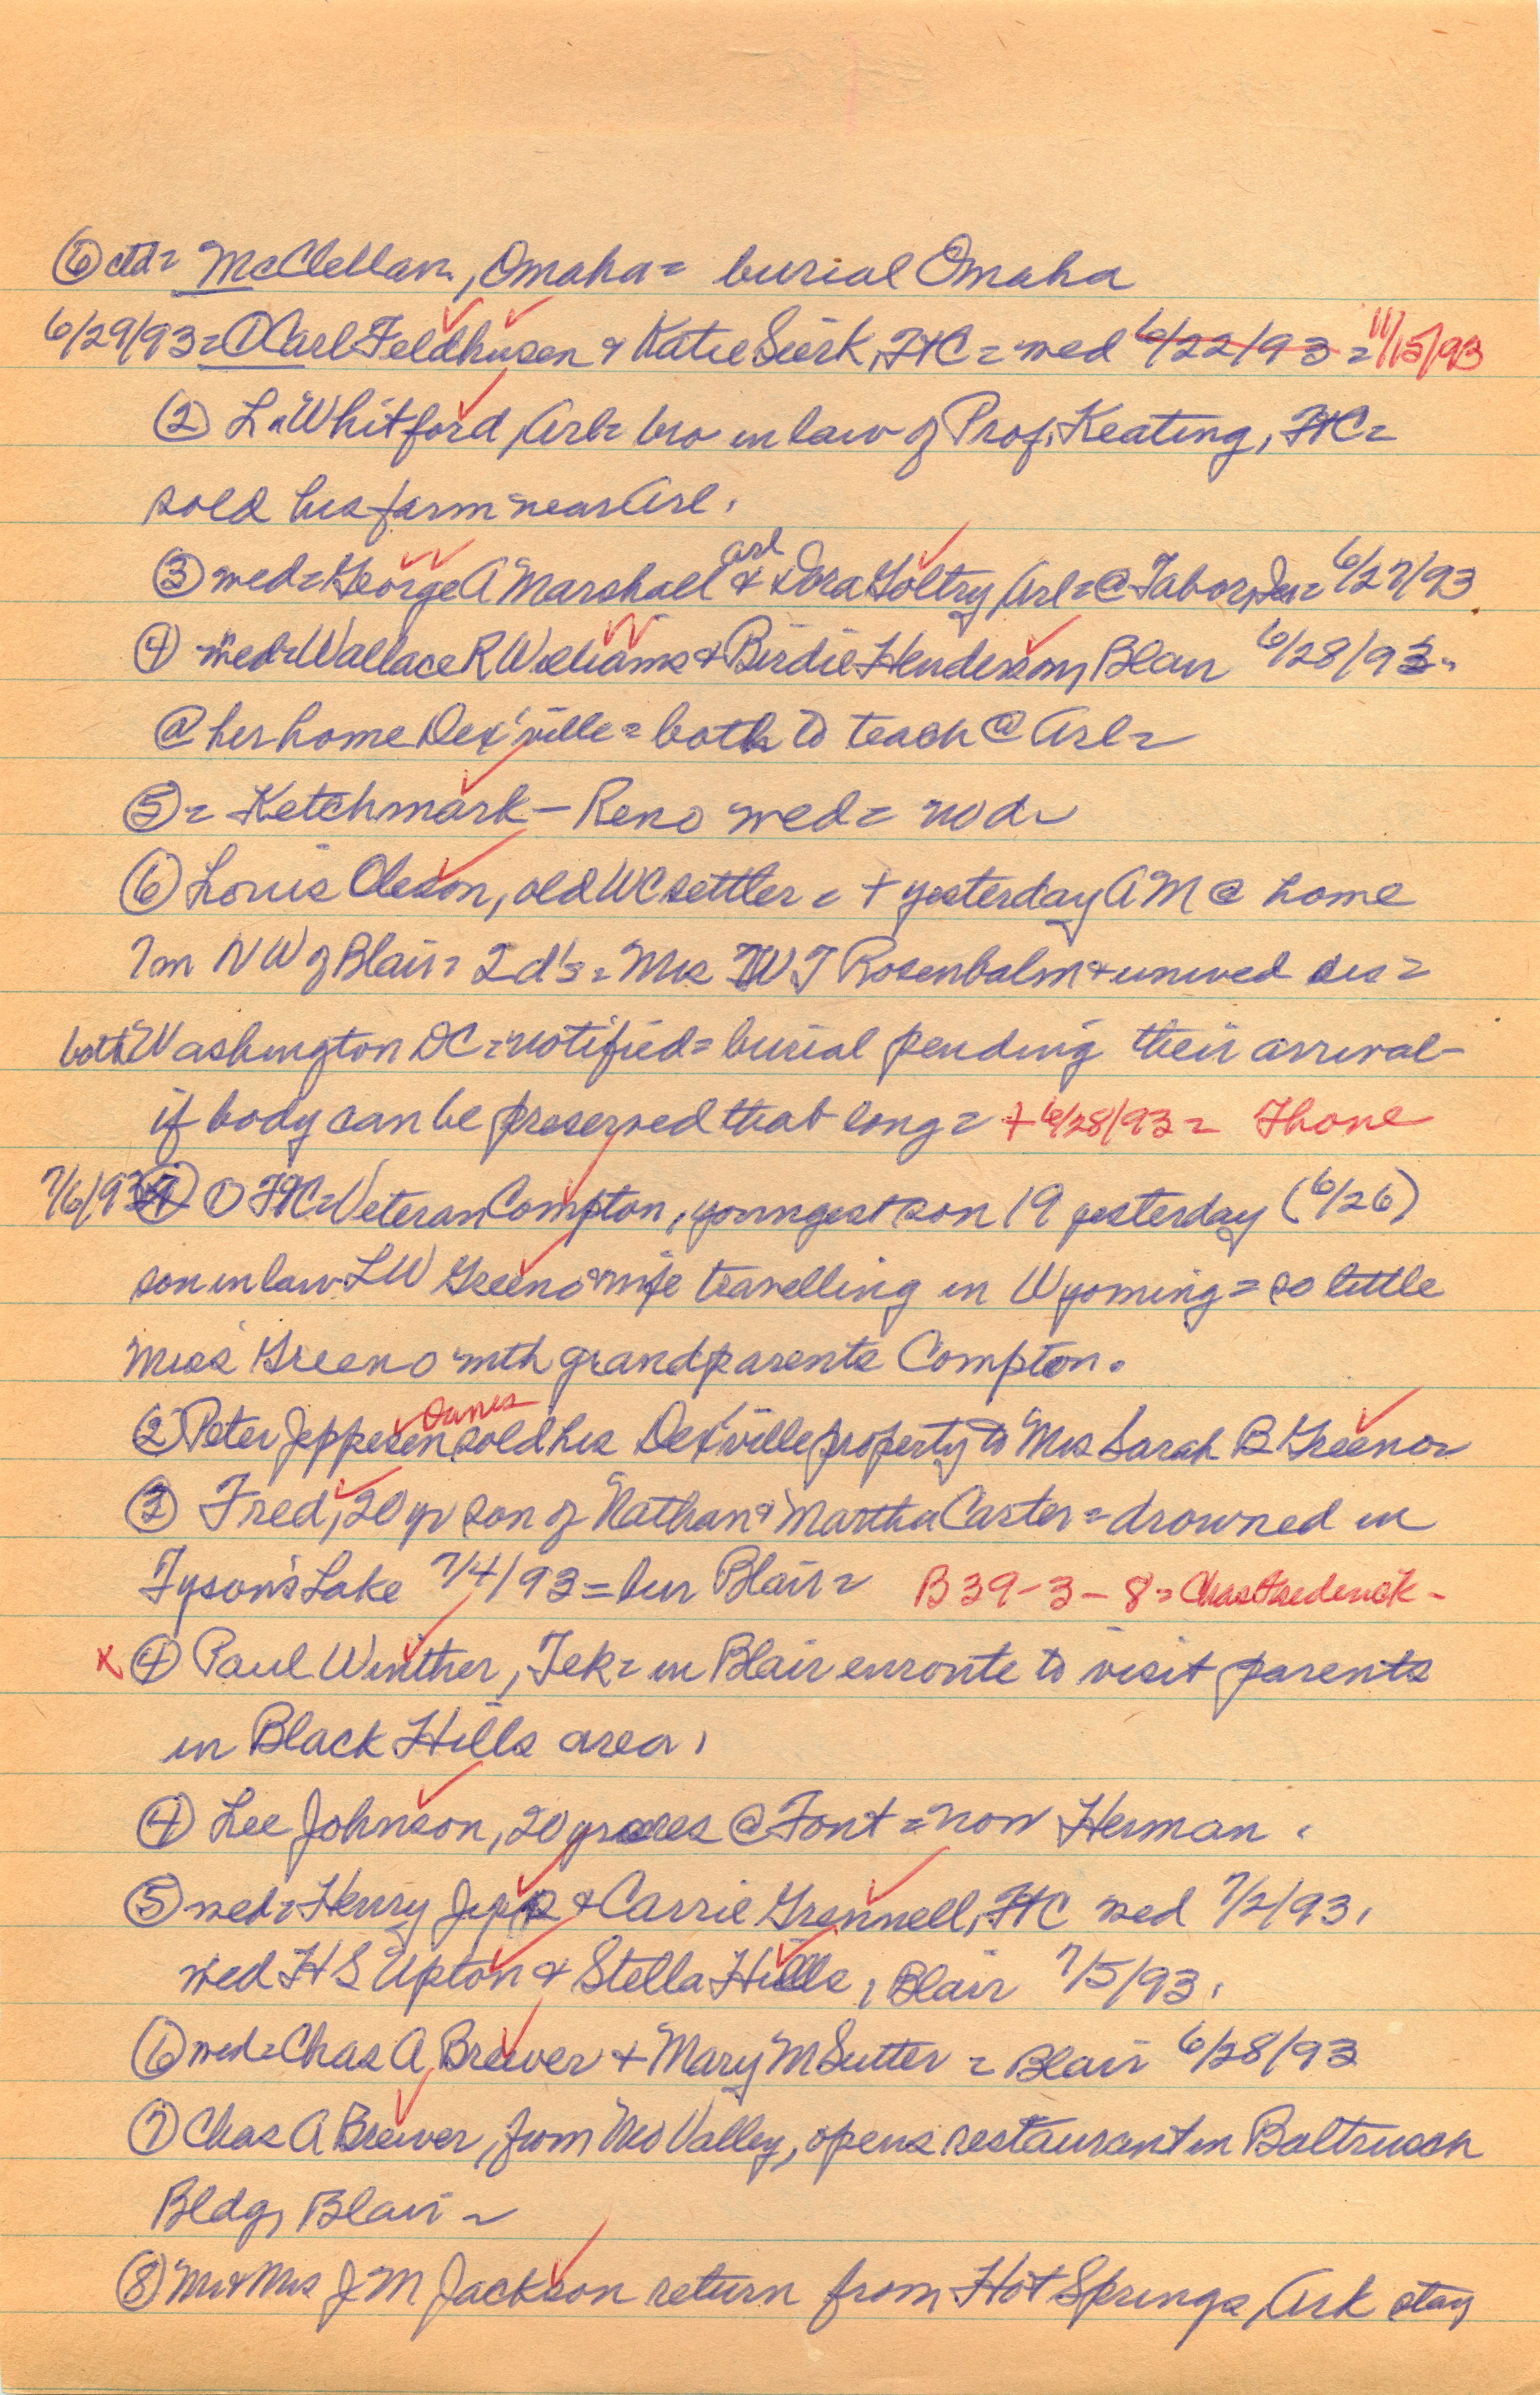 ⑥ ctd = McClellan, Omaha = burial Omaha
6/29/93 = ① Carl Feldhusen & Katie Sierk, FtC = wed 6/22/93 = 11/15/93
② L Whitford, Arl = bro in law of Prof. Keating, FtC =
sold his farm near Arl.
③ wed = George A Marshall Arl & Dora Goltry, Arl = @ Tabor, Ia = 6/27/93
④ wed = Wallace R Williams & Birdie Henderson, Blair 6/28/93 =
@ her home Dex'ville = both to teach @ Arl =
⑤ = Ketchmark - Reno wed = nod =
⑥ Louis Oleson, old WC settler = + yesterday AM @ home
7m NW of Blair = 2 d's = Mrs W T Rosenbalm & unwed sis =
both Washington DC = notified = burial pending their arrival -
if body can be preserved that long = + 6/28/93 = Thone
7/6/93 = ① FtC = Veteran Compton, youngest son 19 yesterday (6/26)
son in law LW Greeno & wife travelling in Wyoming = so little
Miss Greeno with grandparents Compton.
② Peter Jeppesen Danes sold his Dex'ville property to Mrs Sarah B Greeno =
③ Fred, 20 yr son of Nathan & Martha Carter = drowned in
Tyson's Lake 7/4/93 = bur Blair = B 39-3-8 = Chas Frederick -
x ④ Paul Winther, Tek = in Blair enroute to visit parents
in Black Hills area.
④ Lee Johnson, 20 yrs @ Font = now Herman.
⑤ wed = Henry Jipp & Carrie Grennell, FtC wed 7/2/93.
wed H S Upton & Stella Hills, Blair 7/5/93.
⑥ wed = Chas A Brewer & Mary M Sutter = Blair 6/28/93
⑦ Chas A Brewer, from Mo Valley, opens restaurant in Baltrusch
Bldg, Blair =
⑧ Mr & Mrs J M Jackson return from Hot Springs, Ark stay